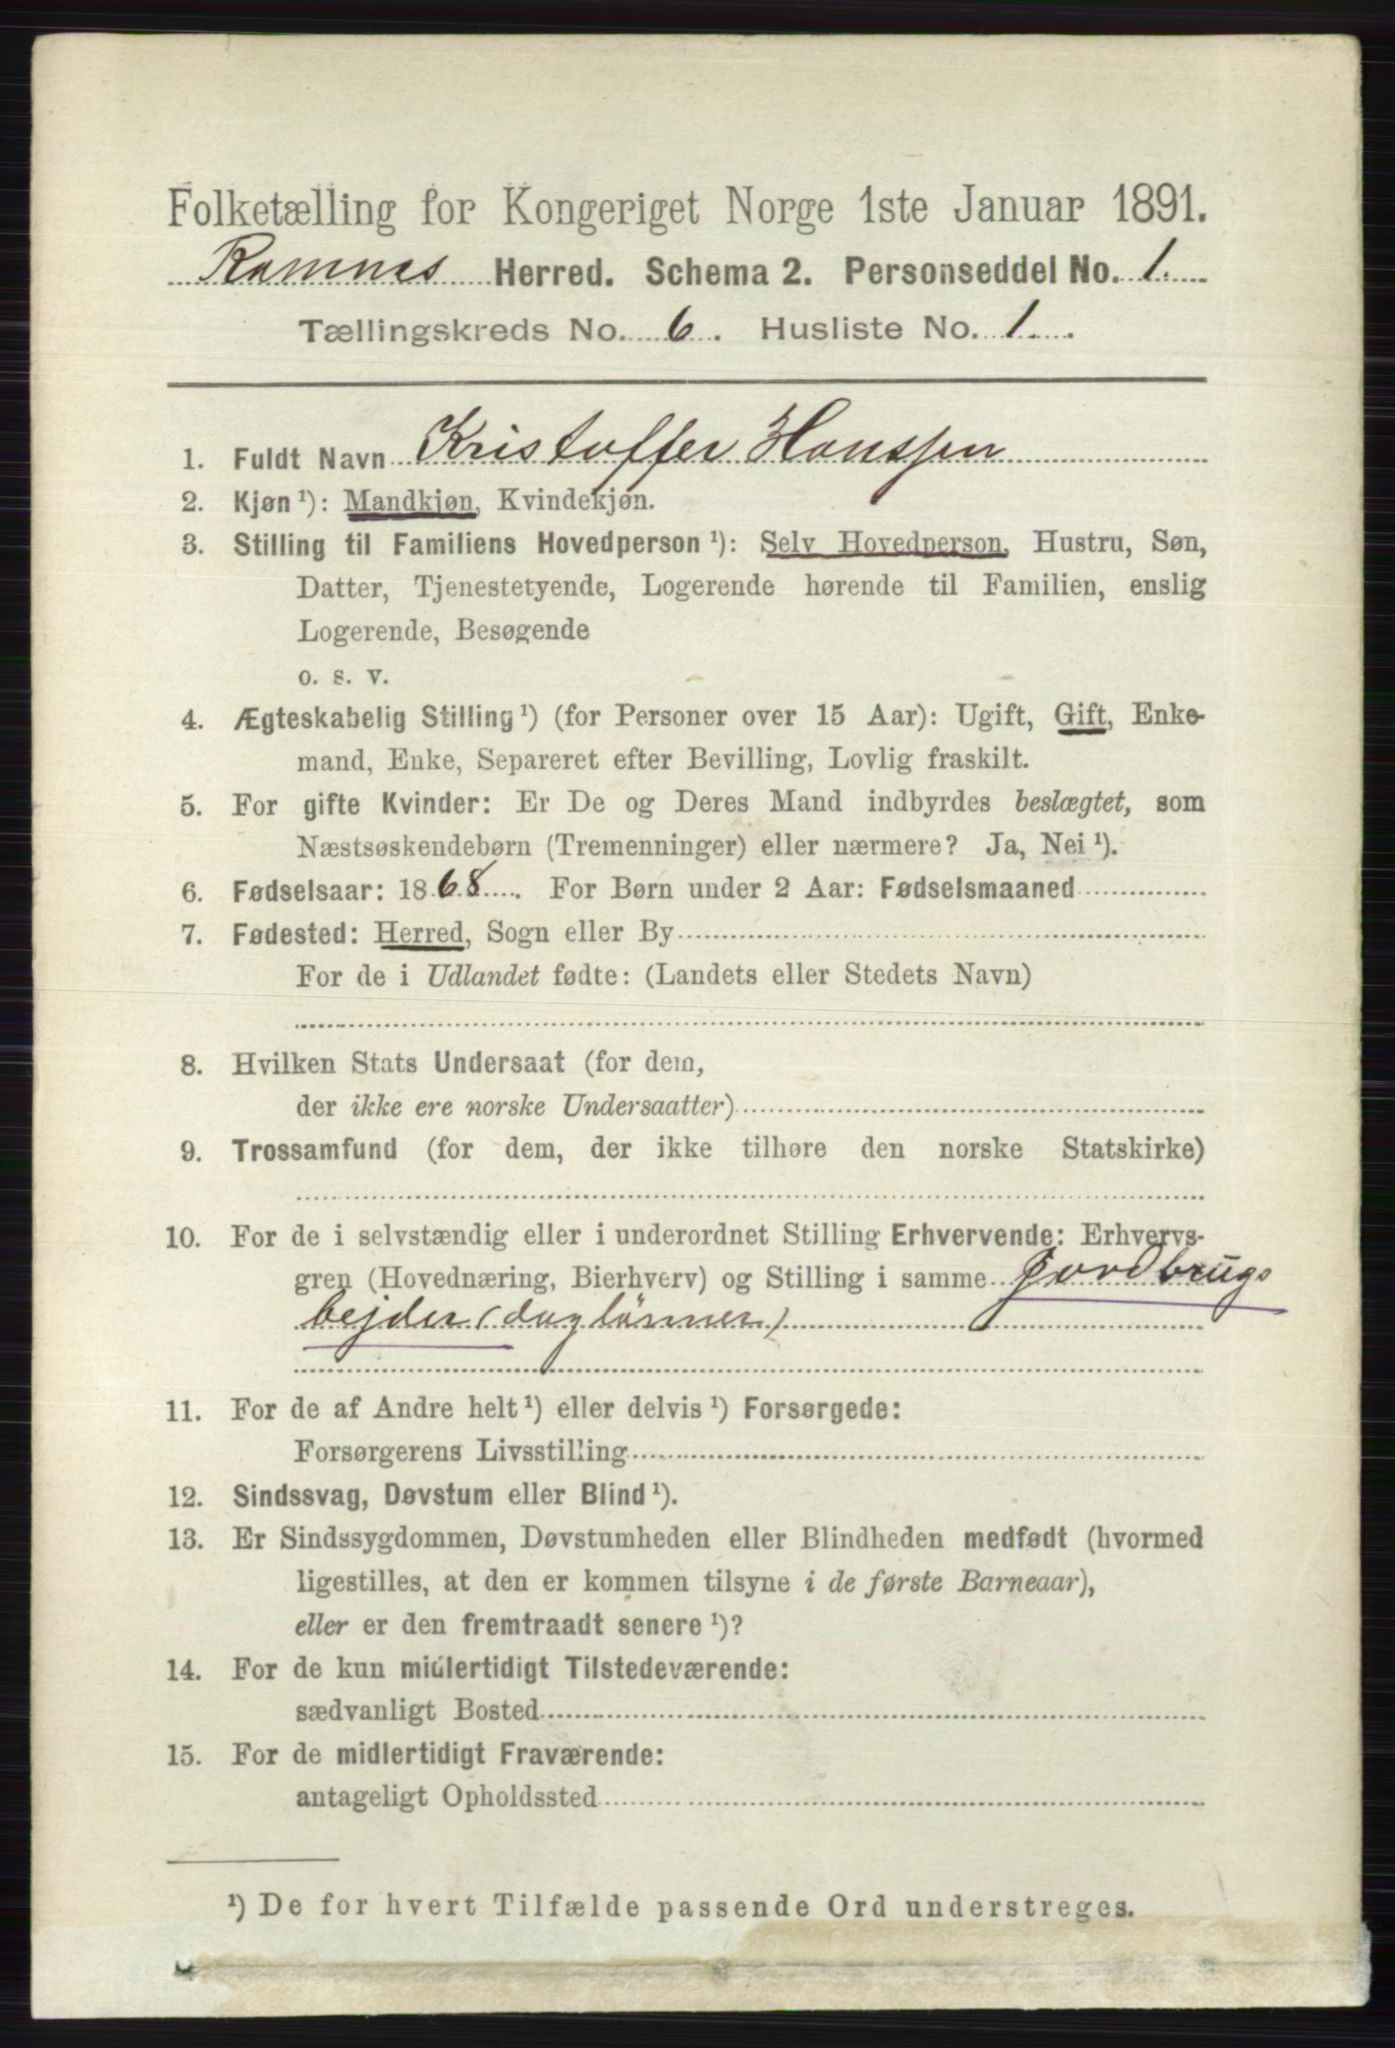 Folketælling for Kongeriget Norge 1ste Januar 1891.
Ramnes Herred. Schema 2. Personseddel No. 1.
Tællingskreds No. 6. Husliste No. 1.
1. Fuldt Navn Kristoffer Hanssen
2. Kjøn ¹): Mandkjøn, Kvindekjøn.
3. Stilling til Familiens Hovedperson ¹): Selv Hovedperson, Hustru, Søn,
Datter, Tjenestetyende, Logerende hørende til Familien, enslig
Logerende, Besøgende
o. s. v.
4. Ægteskabelig Stilling ¹) (for Personer over 15 Aar): Ugift, Gift, Enke-
mand, Enke, Separeret efter Bevilling, Lovlig fraskilt.
5. For gifte Kvinder: Er De og Deres Mand indbyrdes beslægtet, som
Næstsøskendebørn (Tremenninger) eller nærmere? Ja, Nei ¹).
6. Fødselsaar: 1868. For Børn under 2 Aar: Fødselsmaaned
7. Fødested: Herred, Sogn eller By
For de i Udlandet fødte: (Landets eller Stedets Navn)
8. Hvilken Stats Undersaat (for dem,
der ikke ere norske Undersaatter)
9. Trossamfund (for dem, der ikke tilhøre den norske Statskirke)
10. For de i selvstændig eller i underordnet Stilling Erhvervende: Erhvervs-
gren (Hovednæring, Bierhverv) og Stilling i samme jordbrugs
bejder (daglönner)
11. For de af Andre helt ¹) eller delvis ¹) Forsørgede:
Forsørgerens Livsstilling
12. Sindssvag, Døvstum eller Blind ¹).
13. Er Sindssygdommen, Døvstumheden eller Blindheden medfødt (hvormed
ligestilles, at den er kommen tilsyne i de første Barneaar),
eller er den fremtraadt senere ¹)?
14. For de kun midlertidigt Tilstedeværende:
sædvanligt Bosted
15. For de midlertidigt Fraværende:
antageligt Opholdssted
¹) De for hvert Tilfælde passende Ord understreges.